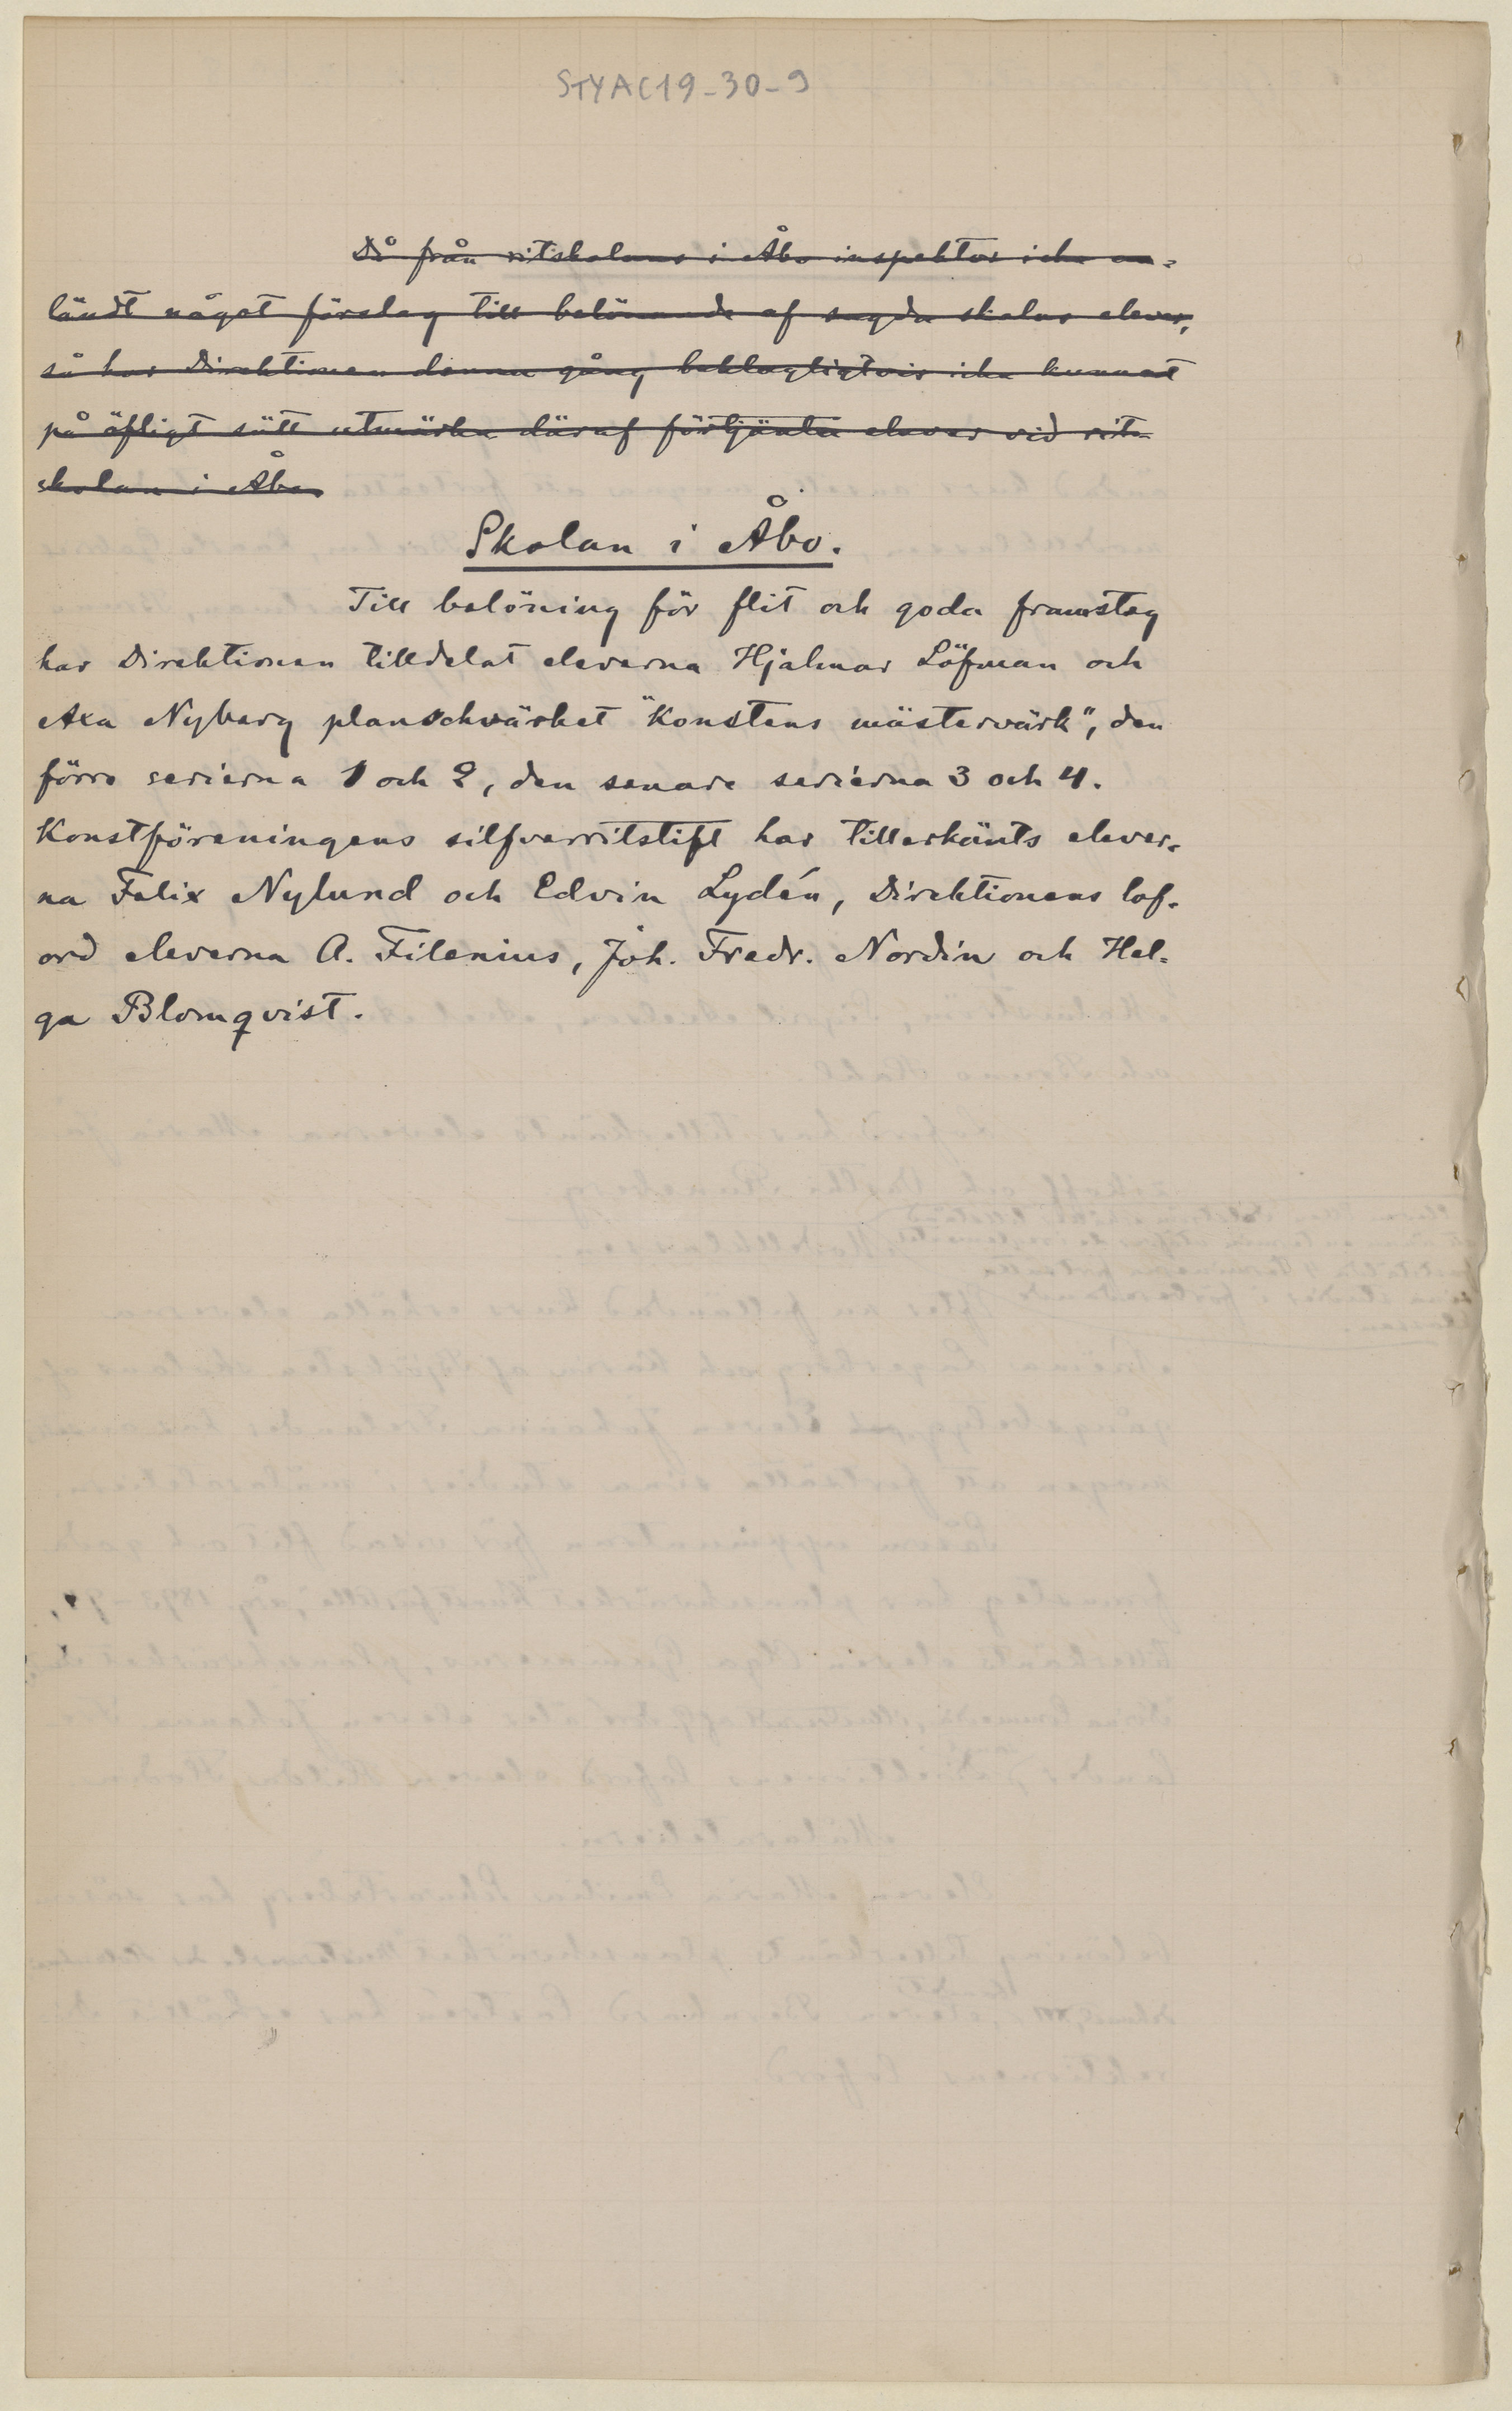 STYAC19-30-9
Då från ritskolans i Åbo inspektor icke an-
ländt något förslag till belönande af sagda skolas elever,
så har Direktionen denna gång beklagligtvis icke kunnat
på öfligt sätt utmärka däraf förtjänta elever vid rit-
skolan i Åbo
Skolan i Åbo.
Till belöning för flit och goda framsteg
har Direktionen tilldelat eleverna Hjalmar Löfman och
Axa Nyberg planschvärket "Konstens mästervärk", den
förre serierna 1 och 2, den senare serierna 3 och 4.
Konstföreningens silfverritstift har tillerkänts elever-
na Felix Nylund och Edvin Lydén, Direktionens lof-
ord eleverna A. Filenius, Joh. Fredr. Nordin och Hel-
ga Blomqvist.